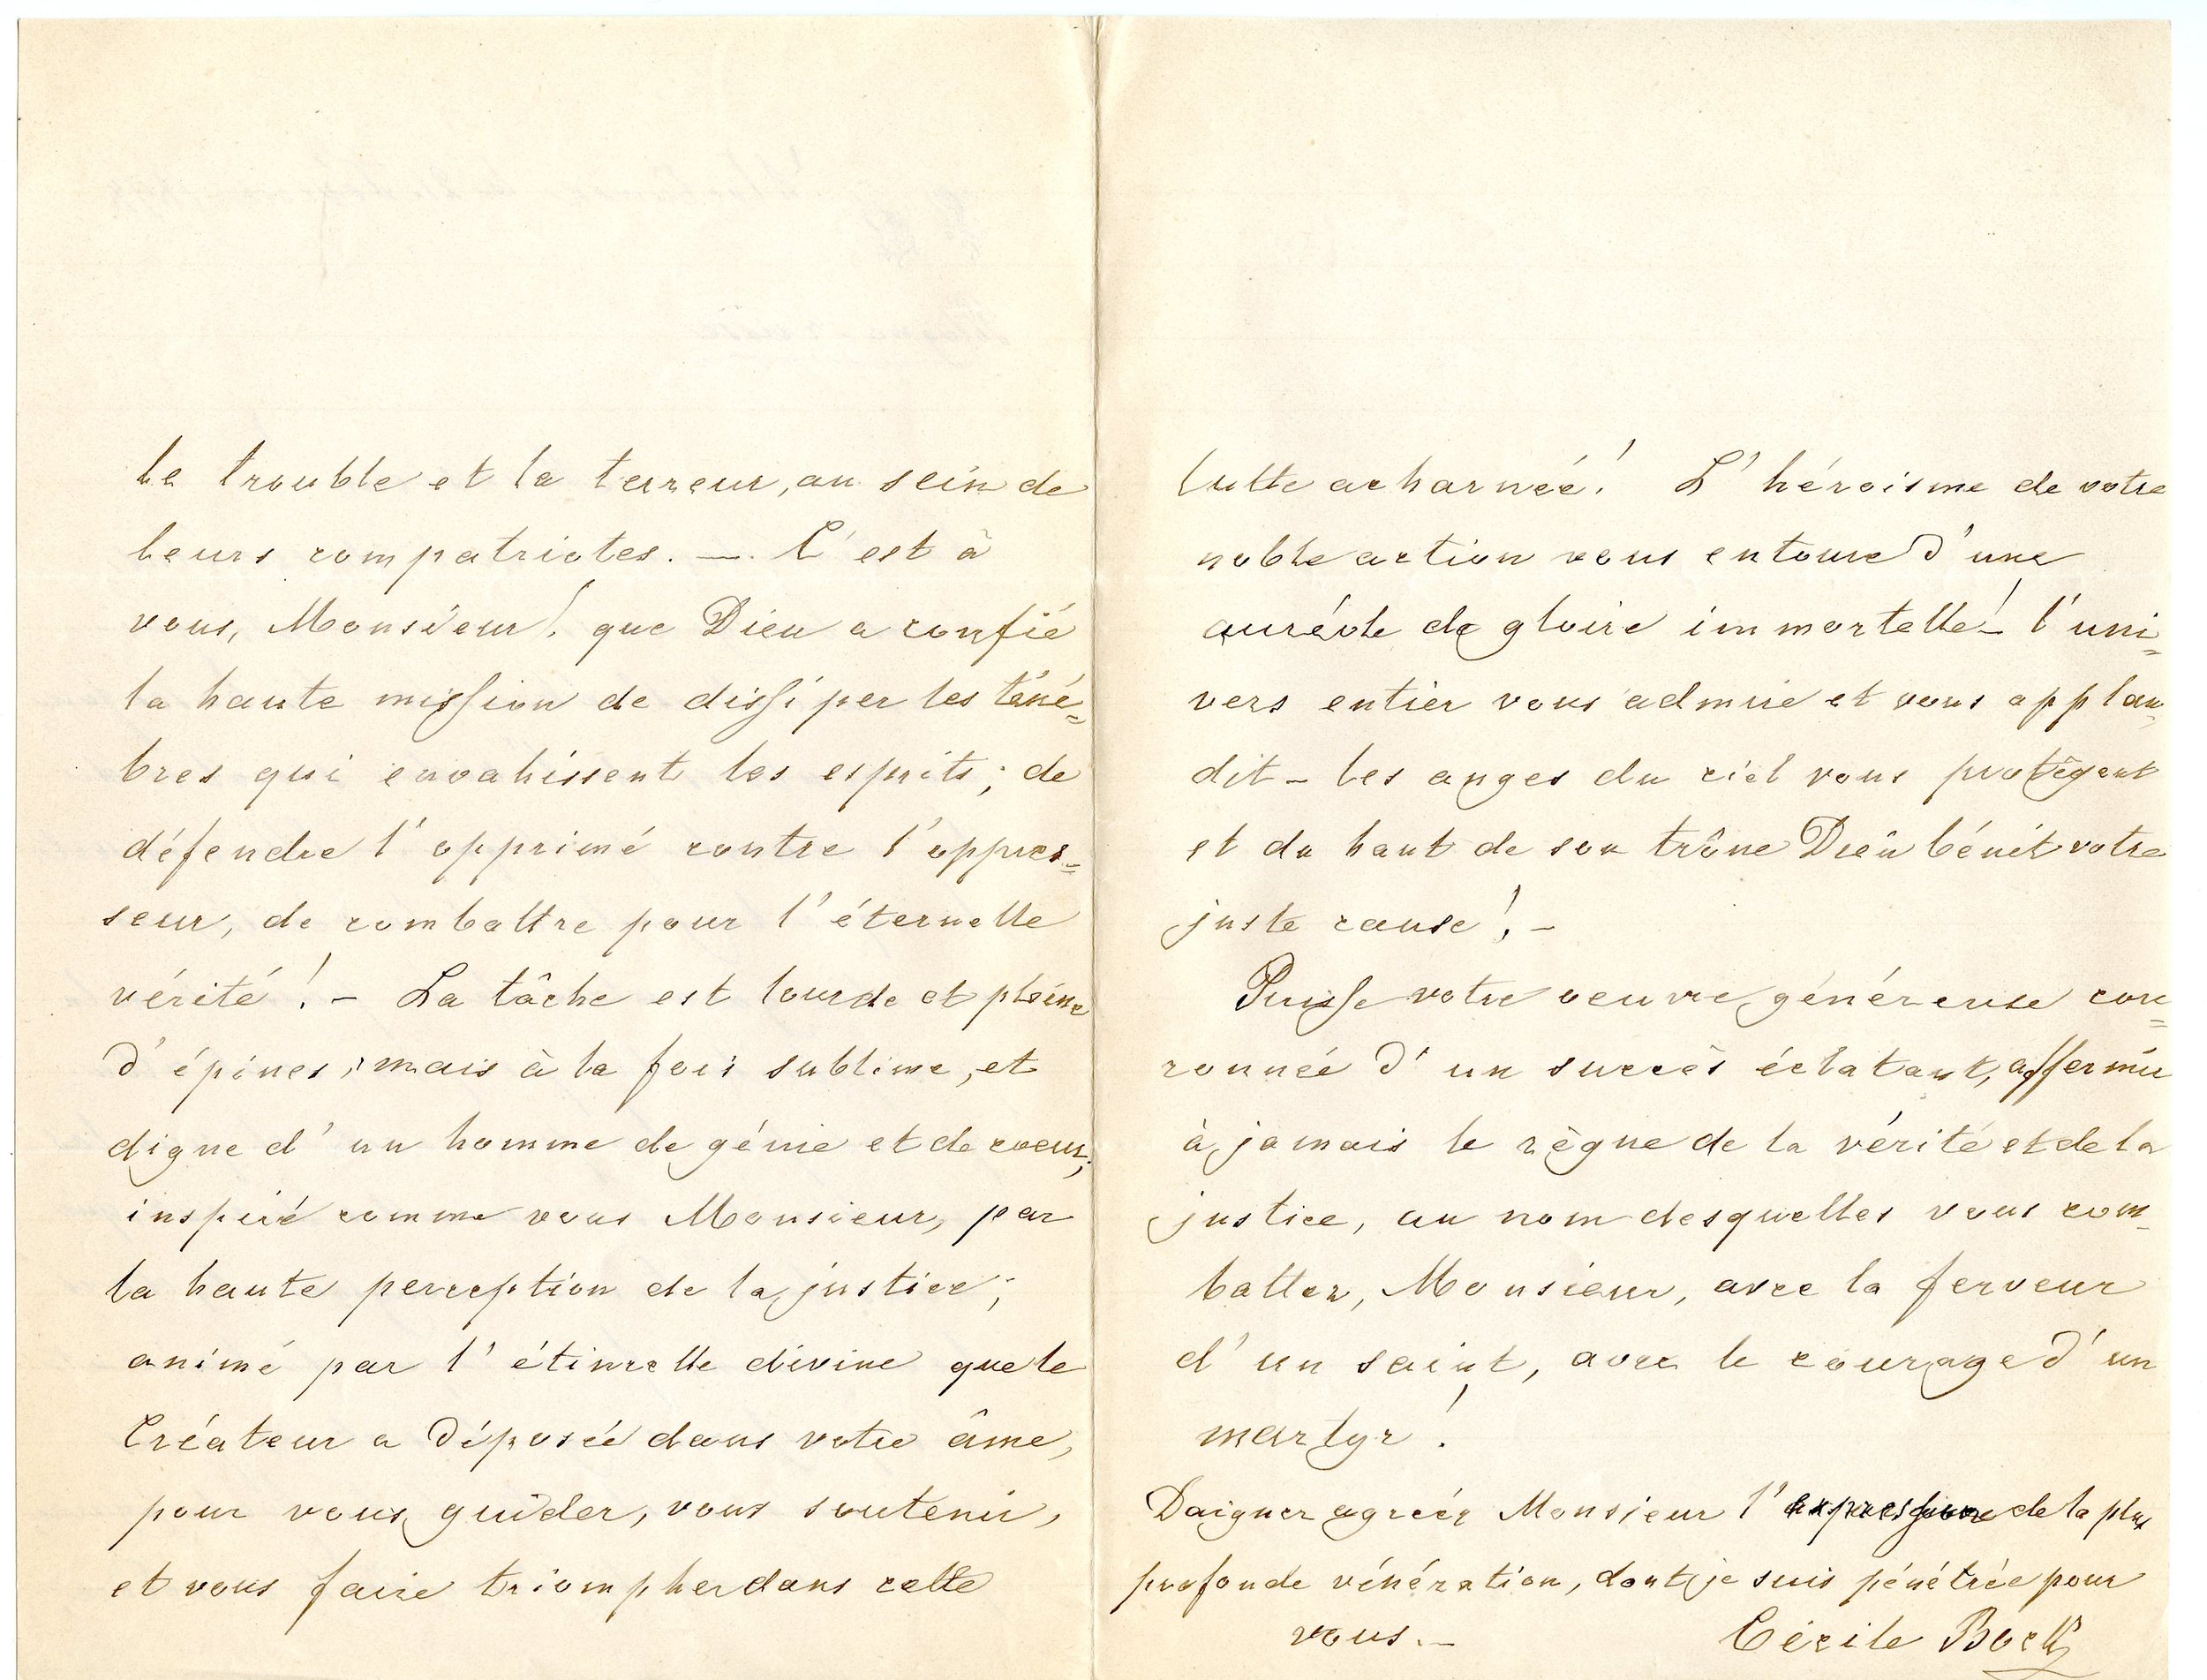 le trouble et la terreur, au sein de
leurs compatriotes. — C'est à
vous, Monsieur! que Dieu a confié
la haute mission de dissiper les téné=
bres qui envahissent les esprits; de
défendre l'opprimé contre l'oppres=
seur, de combattre pour l'éternelle
vérité! – La tâche est lourde et pleine
d'épines, mais à la fois sublime, et
digne d'un homme de génie et de coeur;
inspiré comme vous Monsieur, par
la haute perception de la justice;
animé par l'étincelle divine que le
Créateur a déposée dans votre âme,
pour vous guider, vous soutenir,
et vous faire triompher dans cette
lutte acharnée! L'héroisme de votre
noble action vous entoure d'une
auréole de gloire immortelle! l'uni=
vers entier vous admire et vous applau=
dit – les anges du ciel vous protègent
et du haut de son trône Dieu bénit votre
juste cause! –
Puisse votre oeuvre généreuse cou=
ronnée d'un succès éclatant, affermir
à jamais le règne de la vérité et de la
justice, au nom desquelles vous com-
battez, Monsieur, avec la ferveur
d'un saint, avec le courage d'un
martyr!
Daignez agréer Monsieur l'expression de la plus
profonde vénération, dont je suis pénétrée pour
vous. –
Cécile Bock